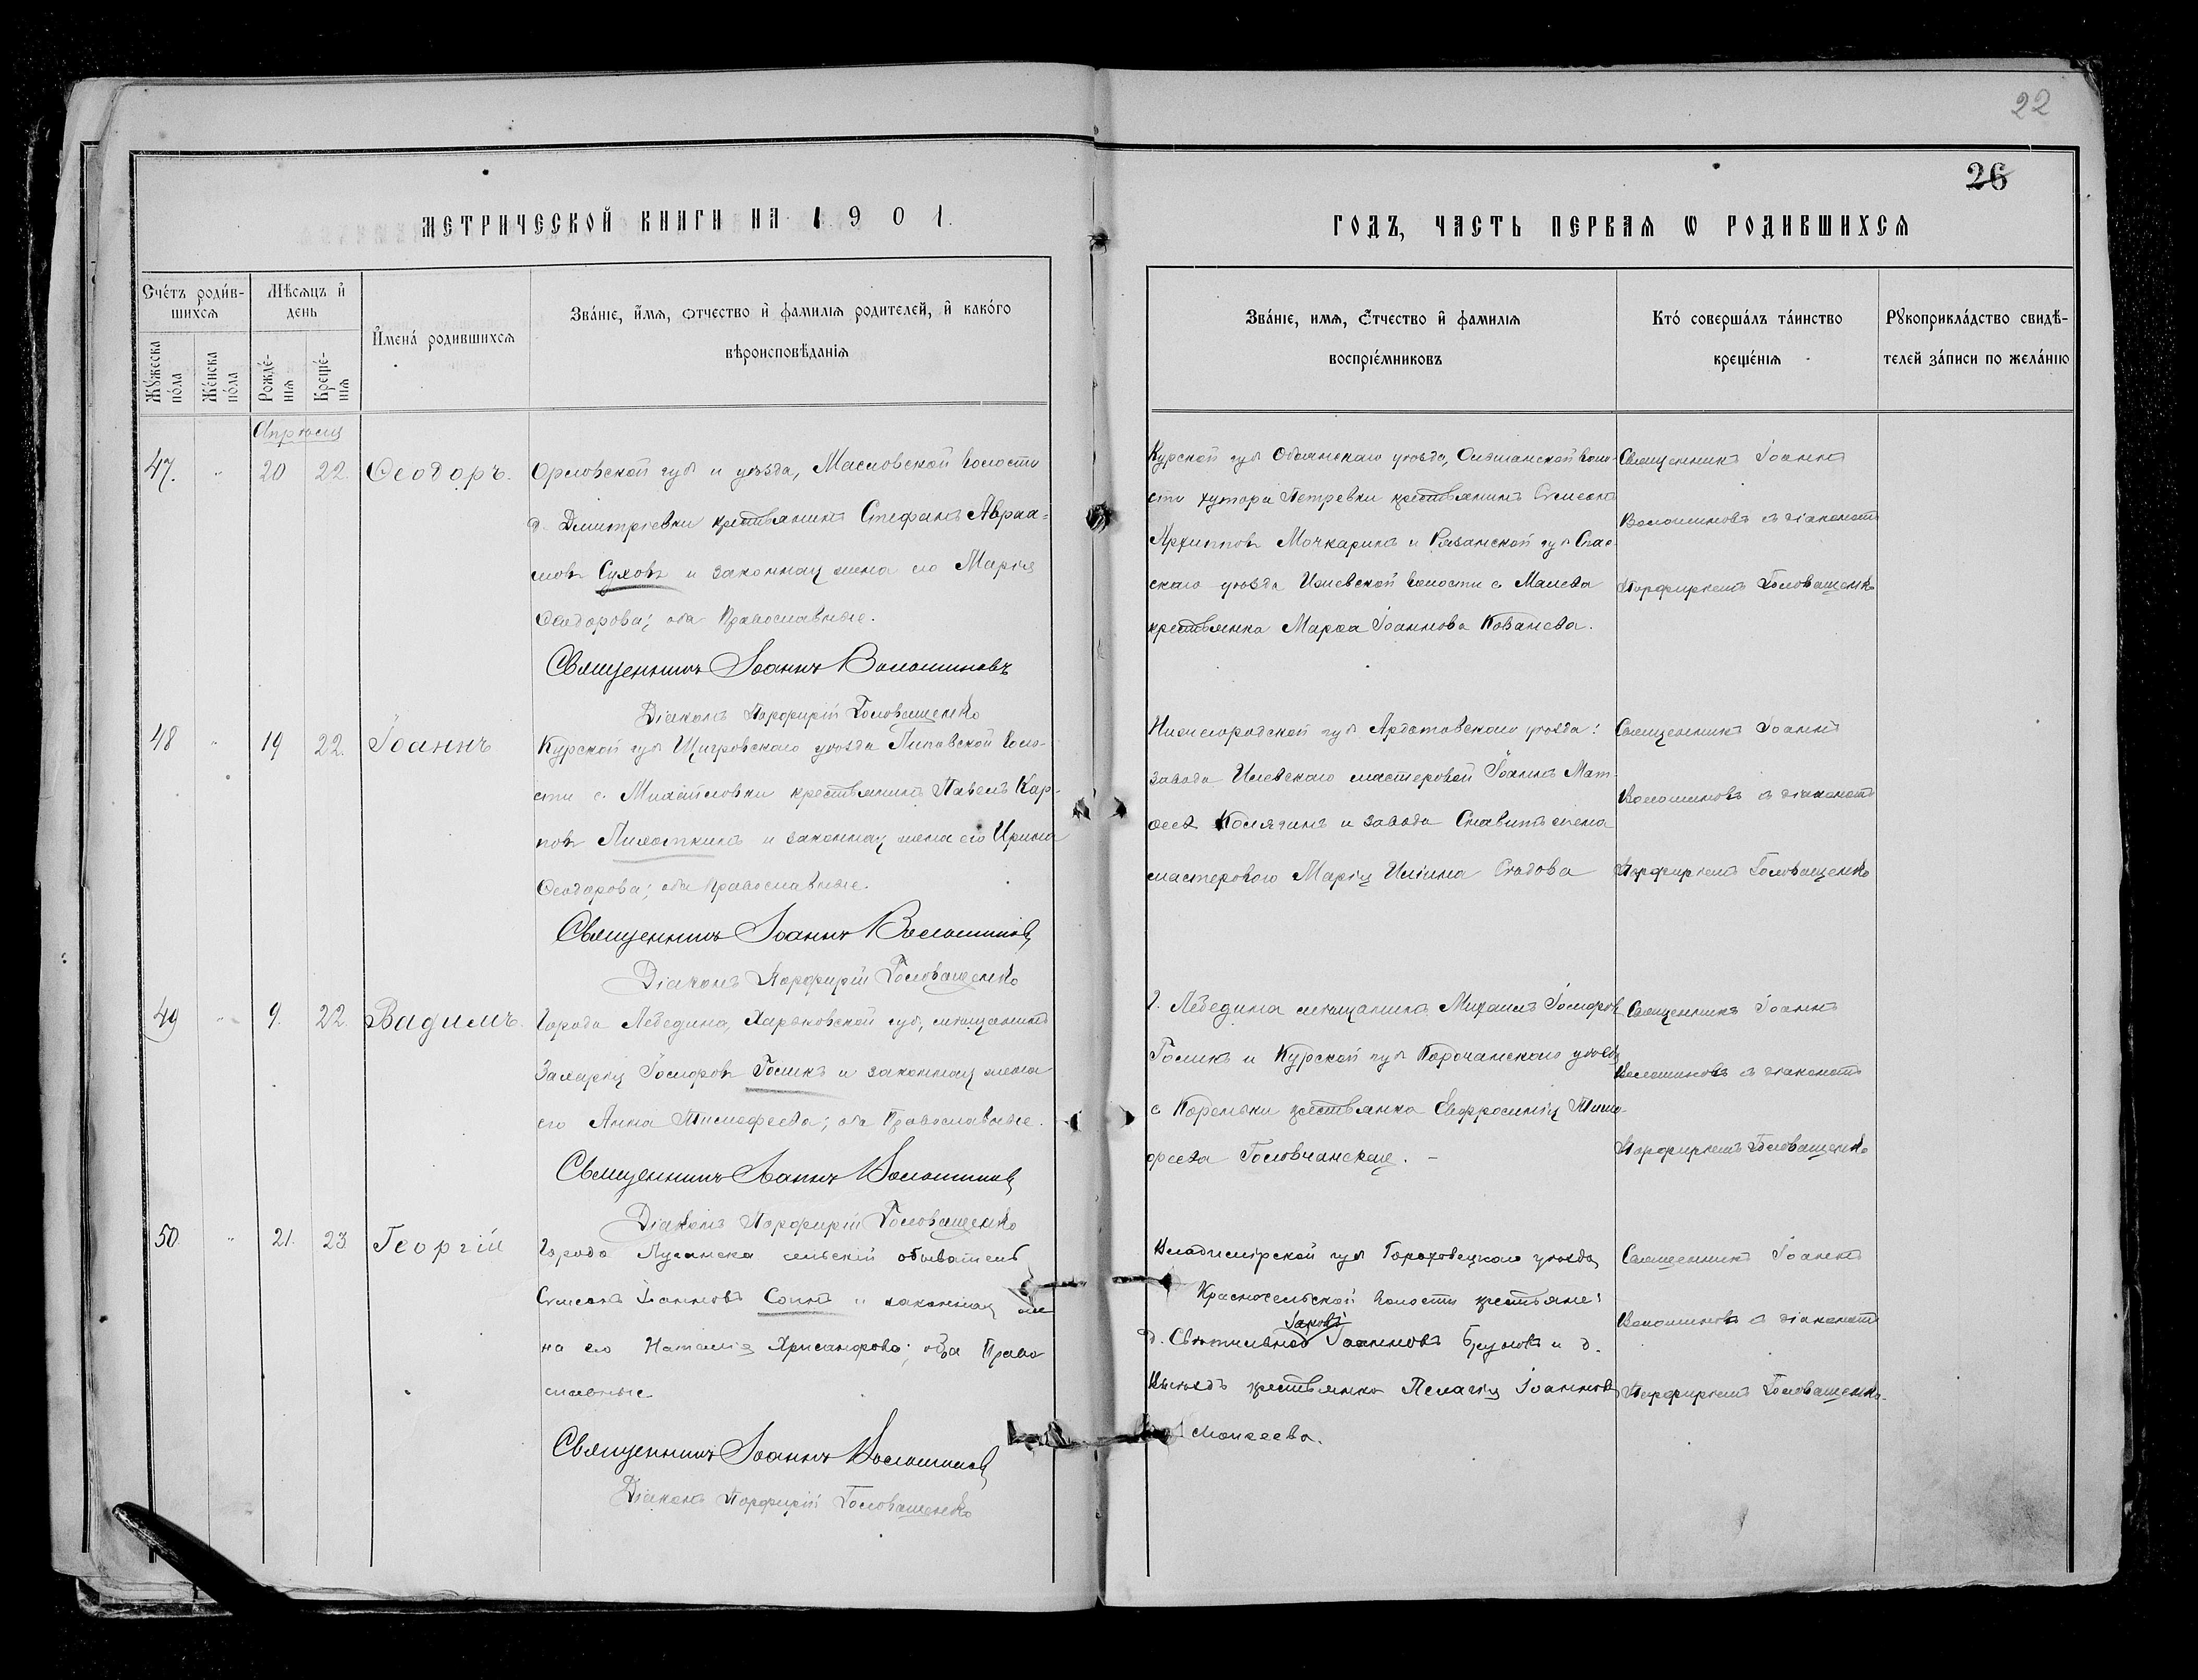 22
26
МЕТРИЧЕСКОЙ КНИГИ НА 1901.
ГОДЪ, ЧАСТЬ ПЕРВАЯ Ѡ РОДИВШИХСЯ
Сче́тъ роди́в-
шихся
Мѣсяцъ и҆
день
Му́жеска
по́ла
Же́нска
по́ла
Рожде́-
нія
Креще́-
нія
И҆мена́ родившихся
Зва́ніе, и҆́мя, ѻтчество и҆ фами́лія родителей, и҆ како́го
вѣроисповѣданія
Зва́ніе, имя, ѻ҆́тчество и҆ фамилія
воспріе́мниковъ
Кто́ соверша́лъ та́инство
креще́нія
Рꙋкоприкла́дство свидѣ-
телей за́писи по жела́нію
Апрѣль
47. " 20 22. Ѳеодоръ.
Орловской губ и уѣзда, Масловской волости
д. Дмитріевки крестьянинъ Стефанъ Авраа-
мовъ Суховъ и законная жена его Марія
Ѳеодорова; оба Православные.
Священникъ Іоаннъ Волошиновъ
Діаконъ Порфирій Головащенко
Курской губ Обоянскаго уѣзда, Ольшанской воло-
сти хутора Петревки крестьянинъ Симеонъ
Архиповъ Мочкаринъ и Рязанской губ Спас-
скаго уѣзда Ижевской волости с Малева
крестьянка Марѳа Іоаннова Ковалева.
Священникъ Іоаннъ
Волошиновъ съ діакономъ
Порфиріемъ Головащенко
48 " 19 22. Іоаннъ
Курской губ Щигровскаго уѣзда Липовской воло-
сти с. крестьянинъ Павелъ Кар-
повъ Лихоткинъ и законная жена его Ирина
Ѳеодорова; оба православные.
Священникъ Іоаннъ Волошиновъ
Діаконъ Порфирій Головащенко
Нижегородской губ Ардатовскаго уѣзда:
завода Илевскаго мастеровой Іоаннъ Мат-
ѳеевъ и завода жена
мастерового Марія Ильина
Священникъ Іоаннъ
Волошиновъ съ діакономъ
Порфиріемъ Головащенко
49 " 9. 22. Вадимъ.
Города Лебедина, Харьковской губ, мѣщанинъ
Захарія Іосифовъ Голикъ и законная жена
его Анна Тимофеева; оба Православные.
Священникъ Іоаннъ Волошиновъ
Діаконъ Порфирій Головащенко
г. Лебедина мѣщанинъ Михаилъ Іосифовъ
Голикъ и Курской губ Корочанскаго уѣзда
с Коренки крестьянка Евфросинія Тимо-
феева Головчанская. –
Священникъ Іоаннъ
Волошиновъ съ діакономъ
Порфиріемъ Головащенко
50. " 21. 23 Георгій
Города Луганска сельскій обыватель
Симеонъ Іоанновъ и законная же-
на его Наталія Хрисанфова; оба Право
славные.
Священникъ Іоаннъ Волошиновъ
Діаконъ Порфирій Головащенко
Владимірской губ Гороховецкаго уѣзда
Красносельской волости крестьяне:
Іаковъ
д. Іоанновъ и д.
крестьянка Пелагія Іоаннова
Моисеева.
Священникъ Іоаннъ
Волошиновъ съ діакономъ
Порфиріемъ Головащенко.